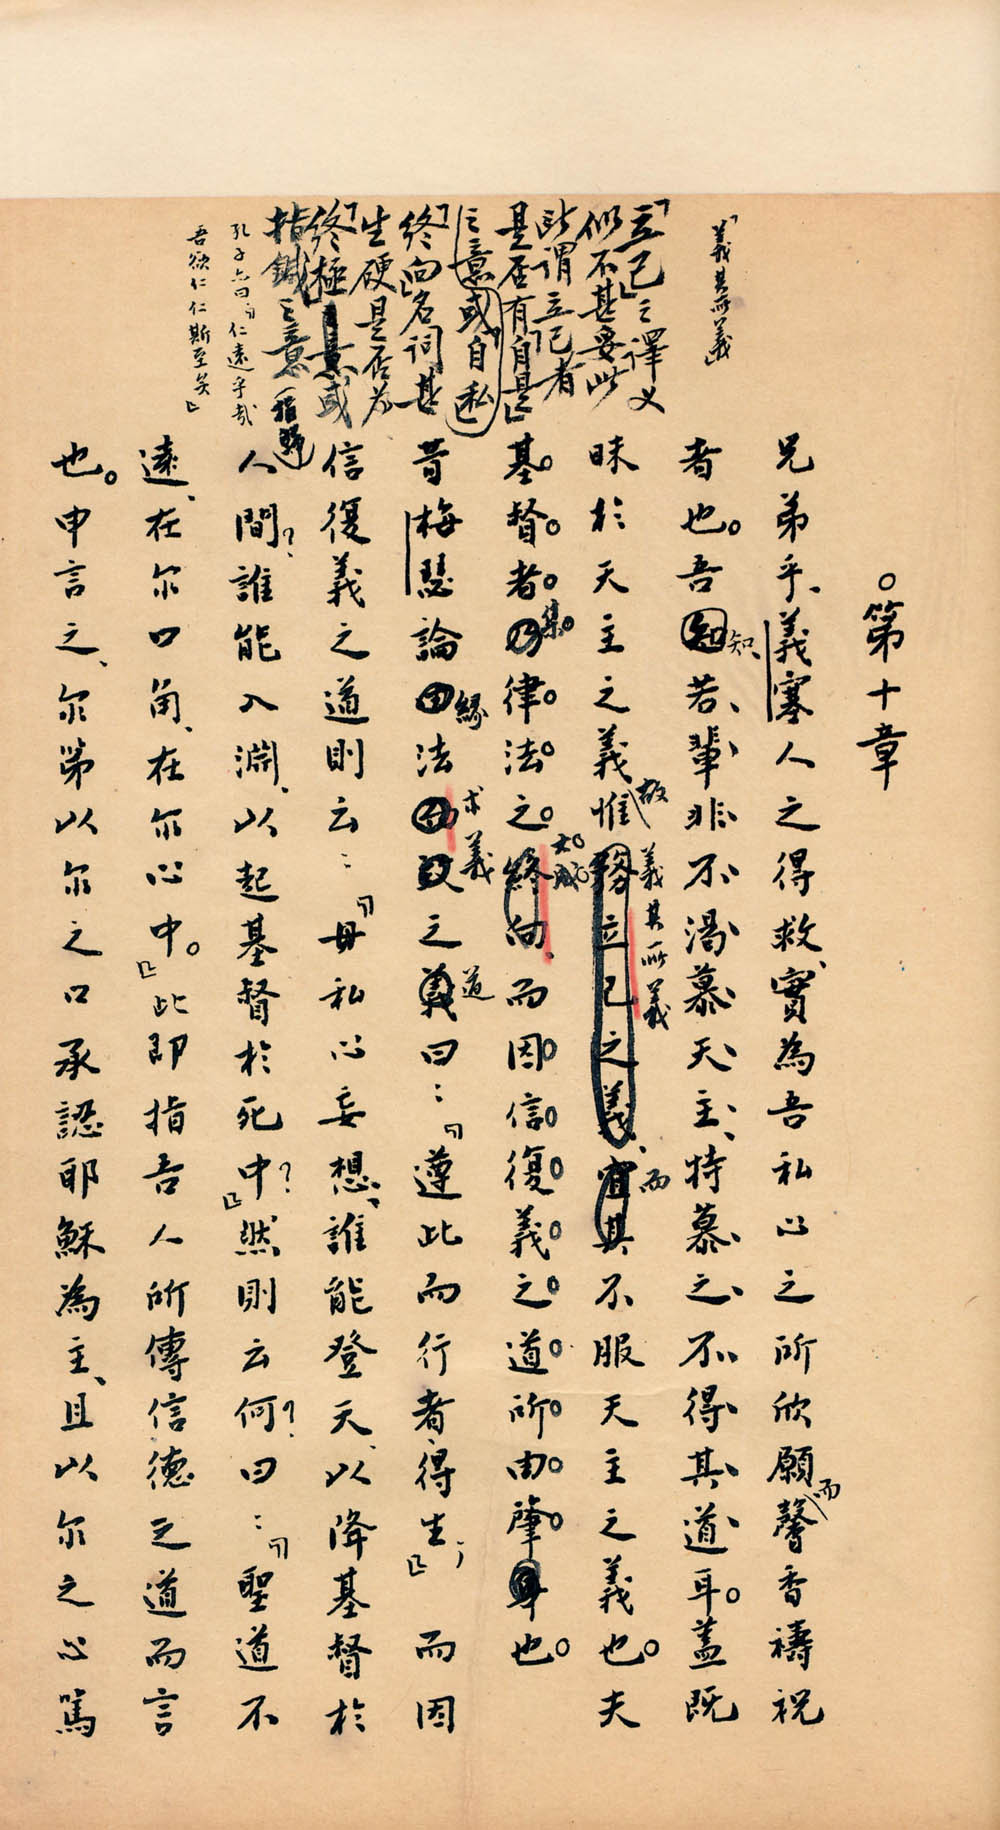 「義其所義」
「立己」之譯义
似不甚妥此
此謂立己者
是否有「自是」
之意或「自私」
「終向」名詞甚
生硬是否為
「終極」意或
指鍼之意(指歸)
孔子亦曰「仁遠乎哉
吾欲仁仁斯至矣」
。第十章
兄弟乎、義塞人之得救、實為吾私心之所欣願而馨香禱祝
者也。吾知若輩非不渴慕天主、特慕之不得其道耳。蓋既
昧於天主之義、故惟務立己之義、義其所義宜其而不服天主之義也。夫
基督者乃集律法之終向、大成而因信復義之道所由肇也。
昔梅瑟論緣法求義之義道曰：「遵此而行者、得生；」而因
信復義之道則云：「毋私心妄想、誰能登天、以降基督於
人間？誰能入淵、以起基督於死中？」然則云何？曰：「聖道不
遠、在尔口角、在尔心中。」此即指吾人所傳信德之道而言
也。申言之、尔苐以尔之口承認耶穌為主、且以尔之心篤